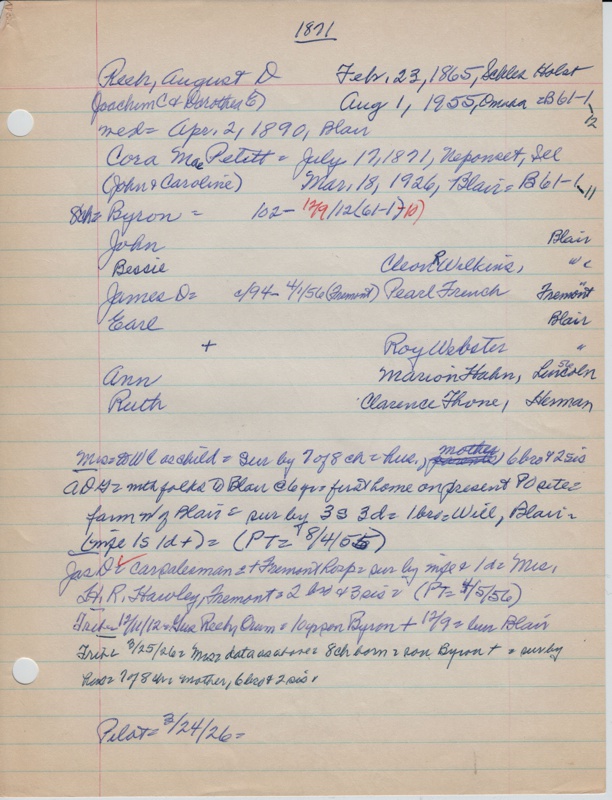 1871
Reeh, August D Feb. 23, 1865, Schles Holst
(Joachim C & Dorothea E) Aug 1, 1955, Omaha = B61-1-12
med= Apr. 2, 1890, Blair
Cora Mae Petitt = July 17, 1871, Neponset, Ill
(John & Caroline) Mar. 18, 1926, Blair = B61-1-11
8ch= Byron = 102- 12/9/12 (61-1-10)
John Blair
Bessie Cleon R Wilkins, " c
James D= c/94- 4/1/56 (Fremont) Pearl French Fremont
Earl Blair
+ Roy Webster "
Ann Marion Hahn, Lincoln
Ruth Clarence Thone, Herman
Mrs= to WC as child = sur by 7 of 8 ch = hus., mother, 6 bro & 2 sis
ADH= with folks to Blair @ 6 yr = first home on present PO site=
farm W of Blair = sur by 3s 3d = 1 bro = Will, Blair=
(mge 1s 1d+)= (PT= 8/4/55)
Jas D= car salesman = + Fremont Hosp = sur by mge & 1d = Mrs.
H. R. Hawley, Fremont = 2 bro & 3 sis = (PT= 4/5/56)
Trib= 12/11/12= Gus Reeh, Orum = 10 yr son Byron + 12/9 = bur Blair
Trib= 3/25/26= Mrs= data as above = 8 ch born = son Byron + = sur by
hus= 7 of 8 ch = mother, 6 bro & 2 sis.
Pilot= 3/24/26=